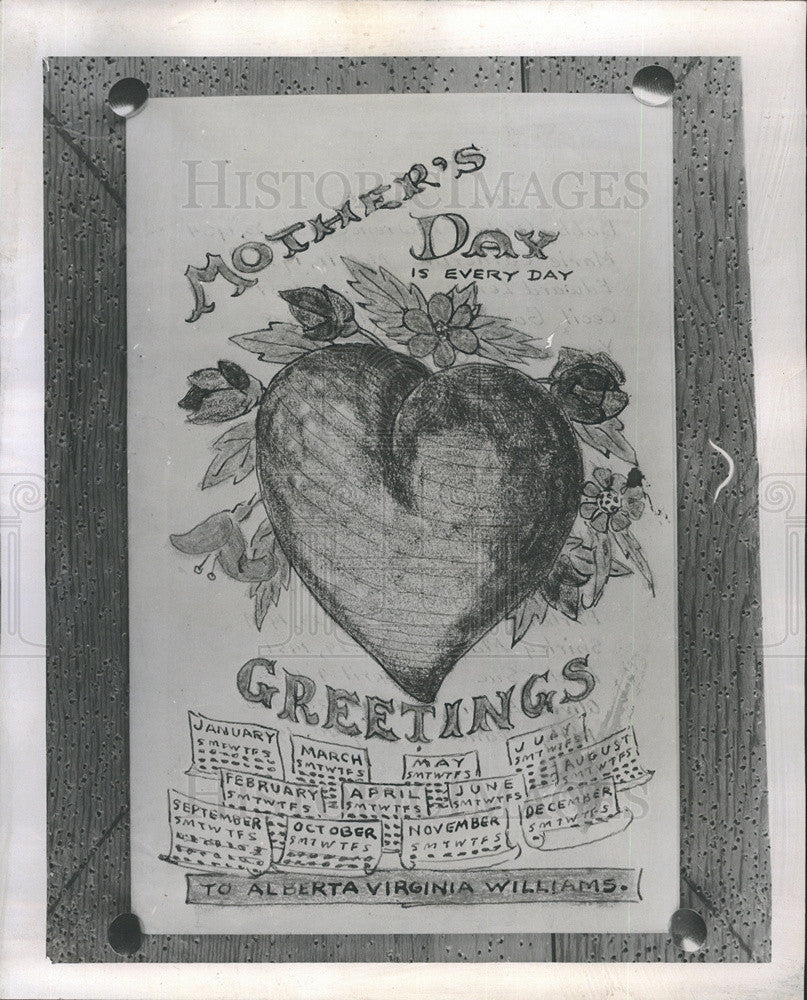 HISTORIC IMAGES
MOTHER'S
DAY
IS EVERY DAY
GREETINGS
JANUARY
SMTWTFS
MARCH
SMTWTFS
MAY
SMTWTFS
JULY
SMTWTFS
AUGUST
SMTWTFS
FEBRUARY
SMTWTFS
APRIL
SMTWTFS
JUNE
SMTWTFS
SEPTEMBER
SMTWTFS
OCTOBER
SMTWTFS
NOVEMBER
SMTWTFS
DECEMBER
SMTWTFS
TO ALBERTA VIRGINIA WILLIAMS.